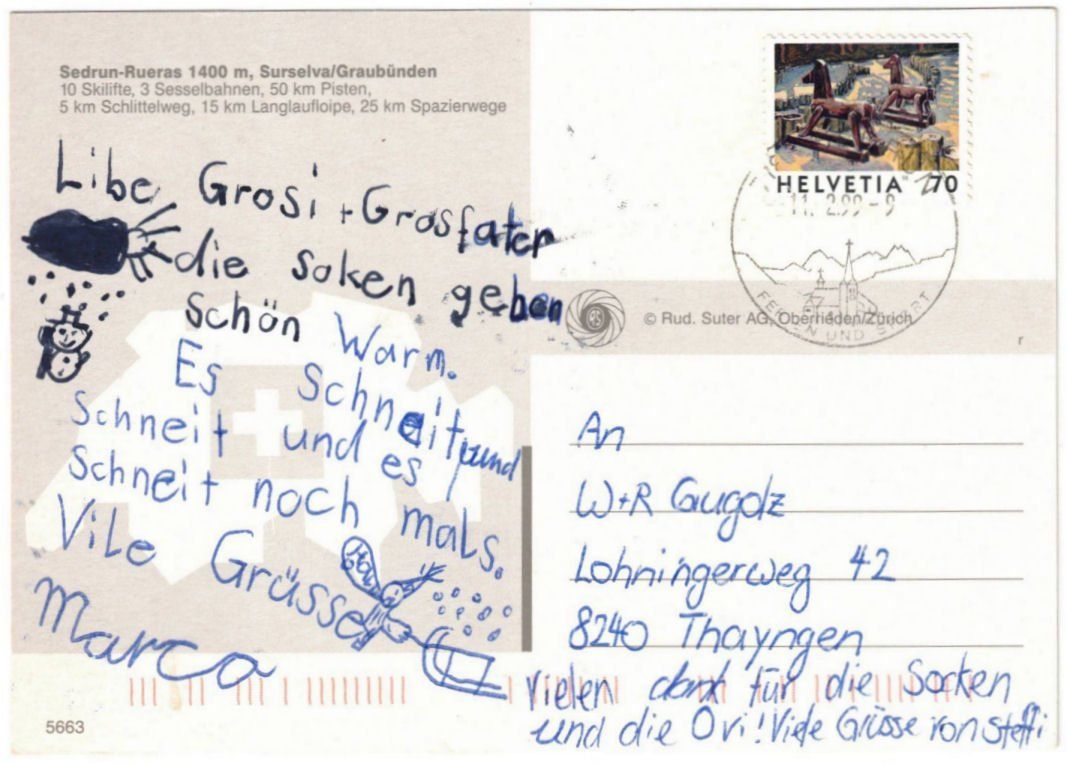 Sedrun-Rueras 1400 m, Surselva/Graubünden
10 Skilifte, 3 Sesselbahnen, 50 km Pisten,
5 km Schlittelweg, 15 km Langlaufloipe, 25 km Spazierwege
Libe Grosi + Grosfater
die soken geben
schön Warm.
Es Schneit und
schneit und es
schneit noch mals.
Vile Grüsse
Marco
5663
HELVETIA 70
11.2.99-9
FERIEN UND SPORT
© Rud. Suter AG, Oberrieden/Zürich
r
An
W+R Gugolz
Lohningerweg 42
8240 Thayngen
Vielen dank für die Socken
und die Ovi! Viele Grüsse von Steffi